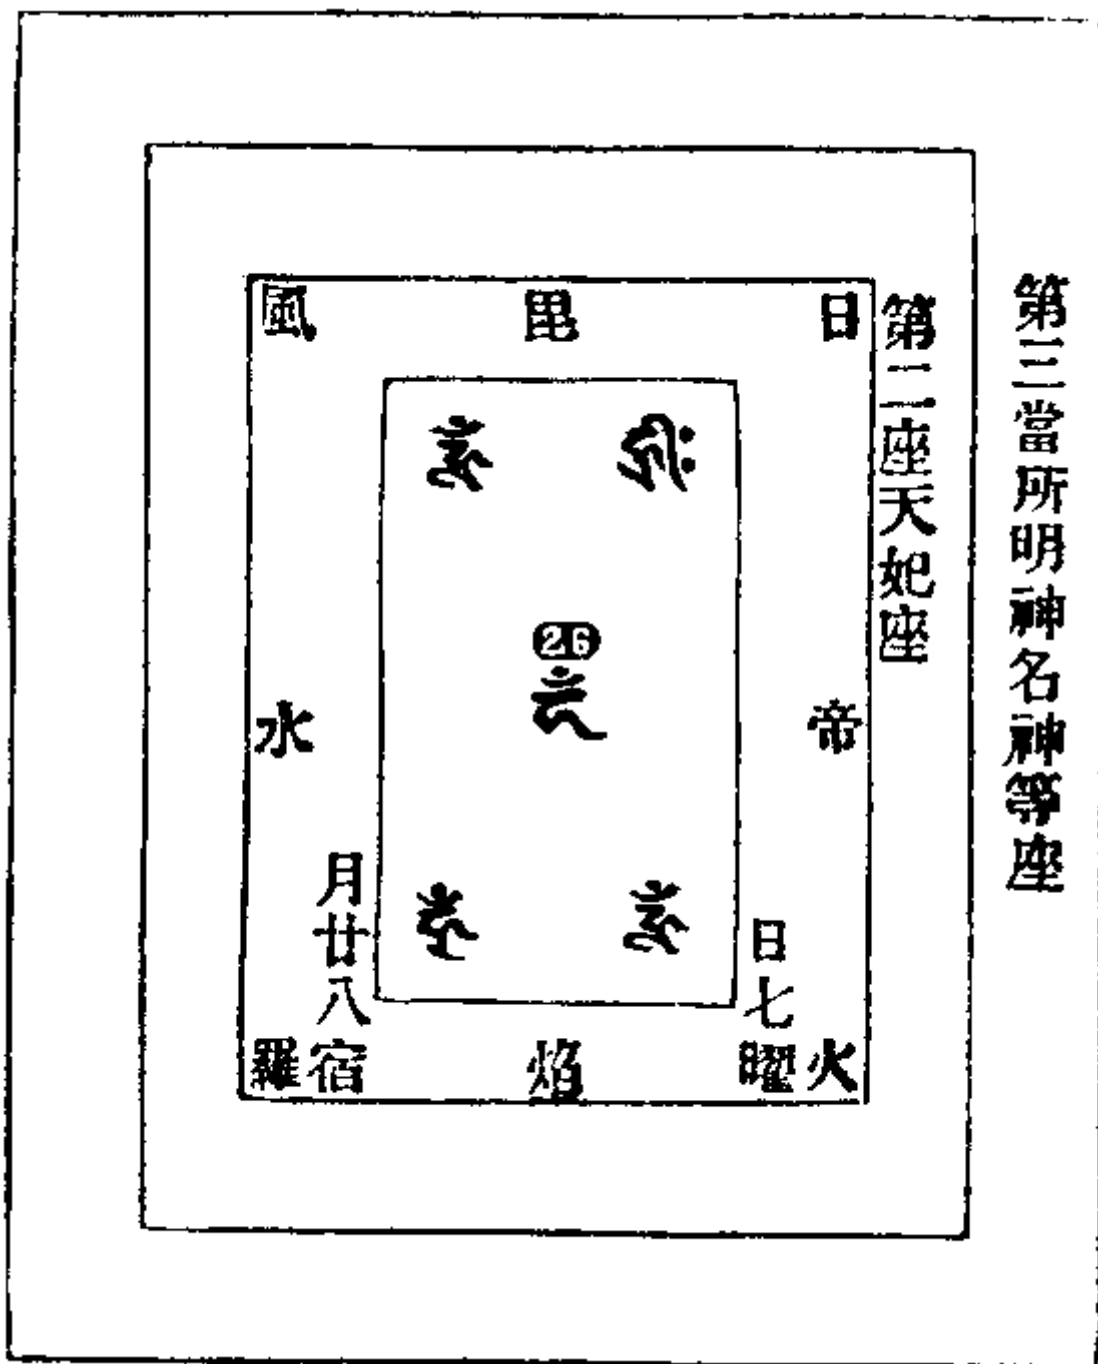 第三當所明神名神等座
第二座天妃座
日
毘
風
帝
水
火
日七曜
焰
月廿八宿
羅
26